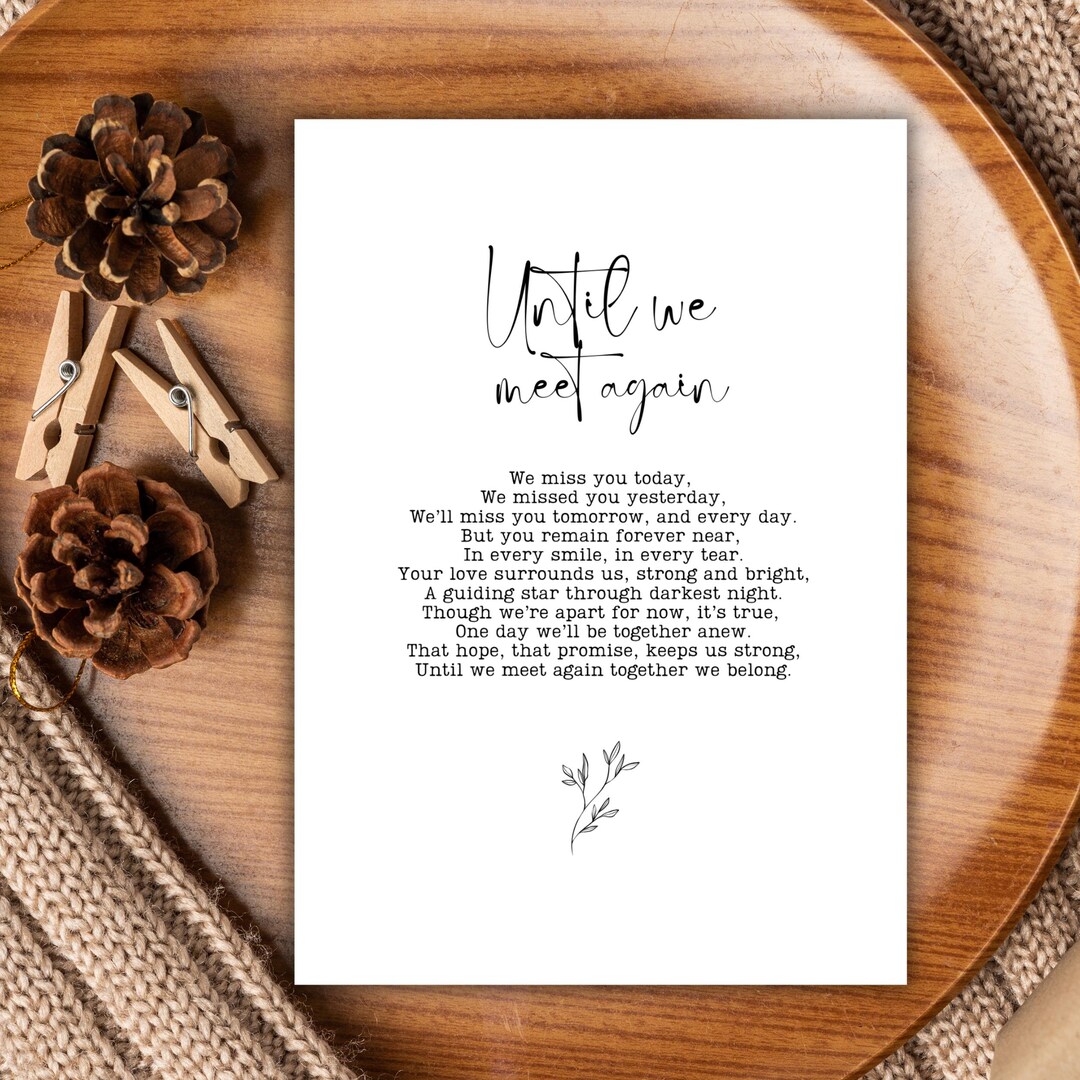 Until we
meet again
We miss you today,
We missed you yesterday,
We'll miss you tomorrow, and every day.
But you remain forever near,
In every smile, in every tear.
Your love surrounds us, strong and bright,
A guiding star through darkest night.
Though we're apart for now, it's true,
One day we'll be together anew.
That hope, that promise, keeps us strong,
Until we meet again together we belong.